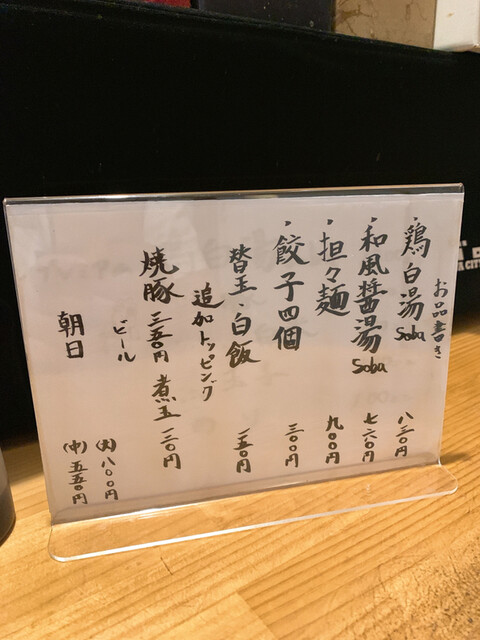 お品書き
・鶏白湯 Soba 八三〇円
・和風醤湯 Soba 七六〇円
・担々麺 九〇〇円
・餃子四個 三〇〇円
替玉・白飯 一五〇円
追加トッピング
焼豚 三五〇円 煮玉 一三〇円
ビール (大) 八〇〇円
朝日 (中) 五五〇円